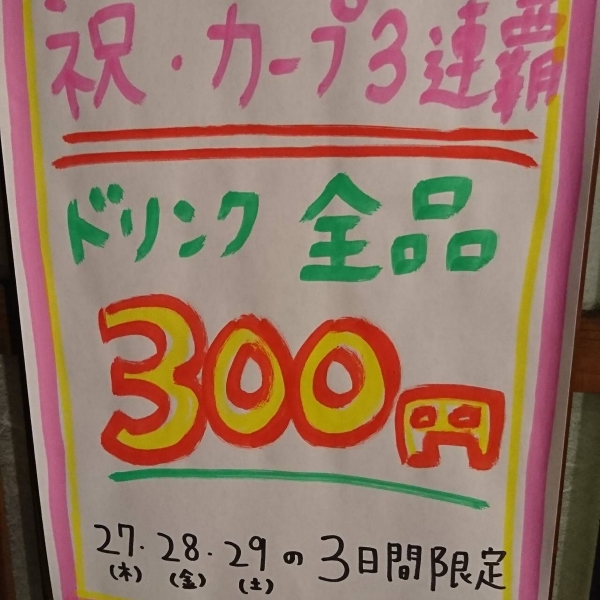 祝・カープ3連覇
ドリンク 全品
300円
27・28・29の3日間限定
(木) (金) (土)